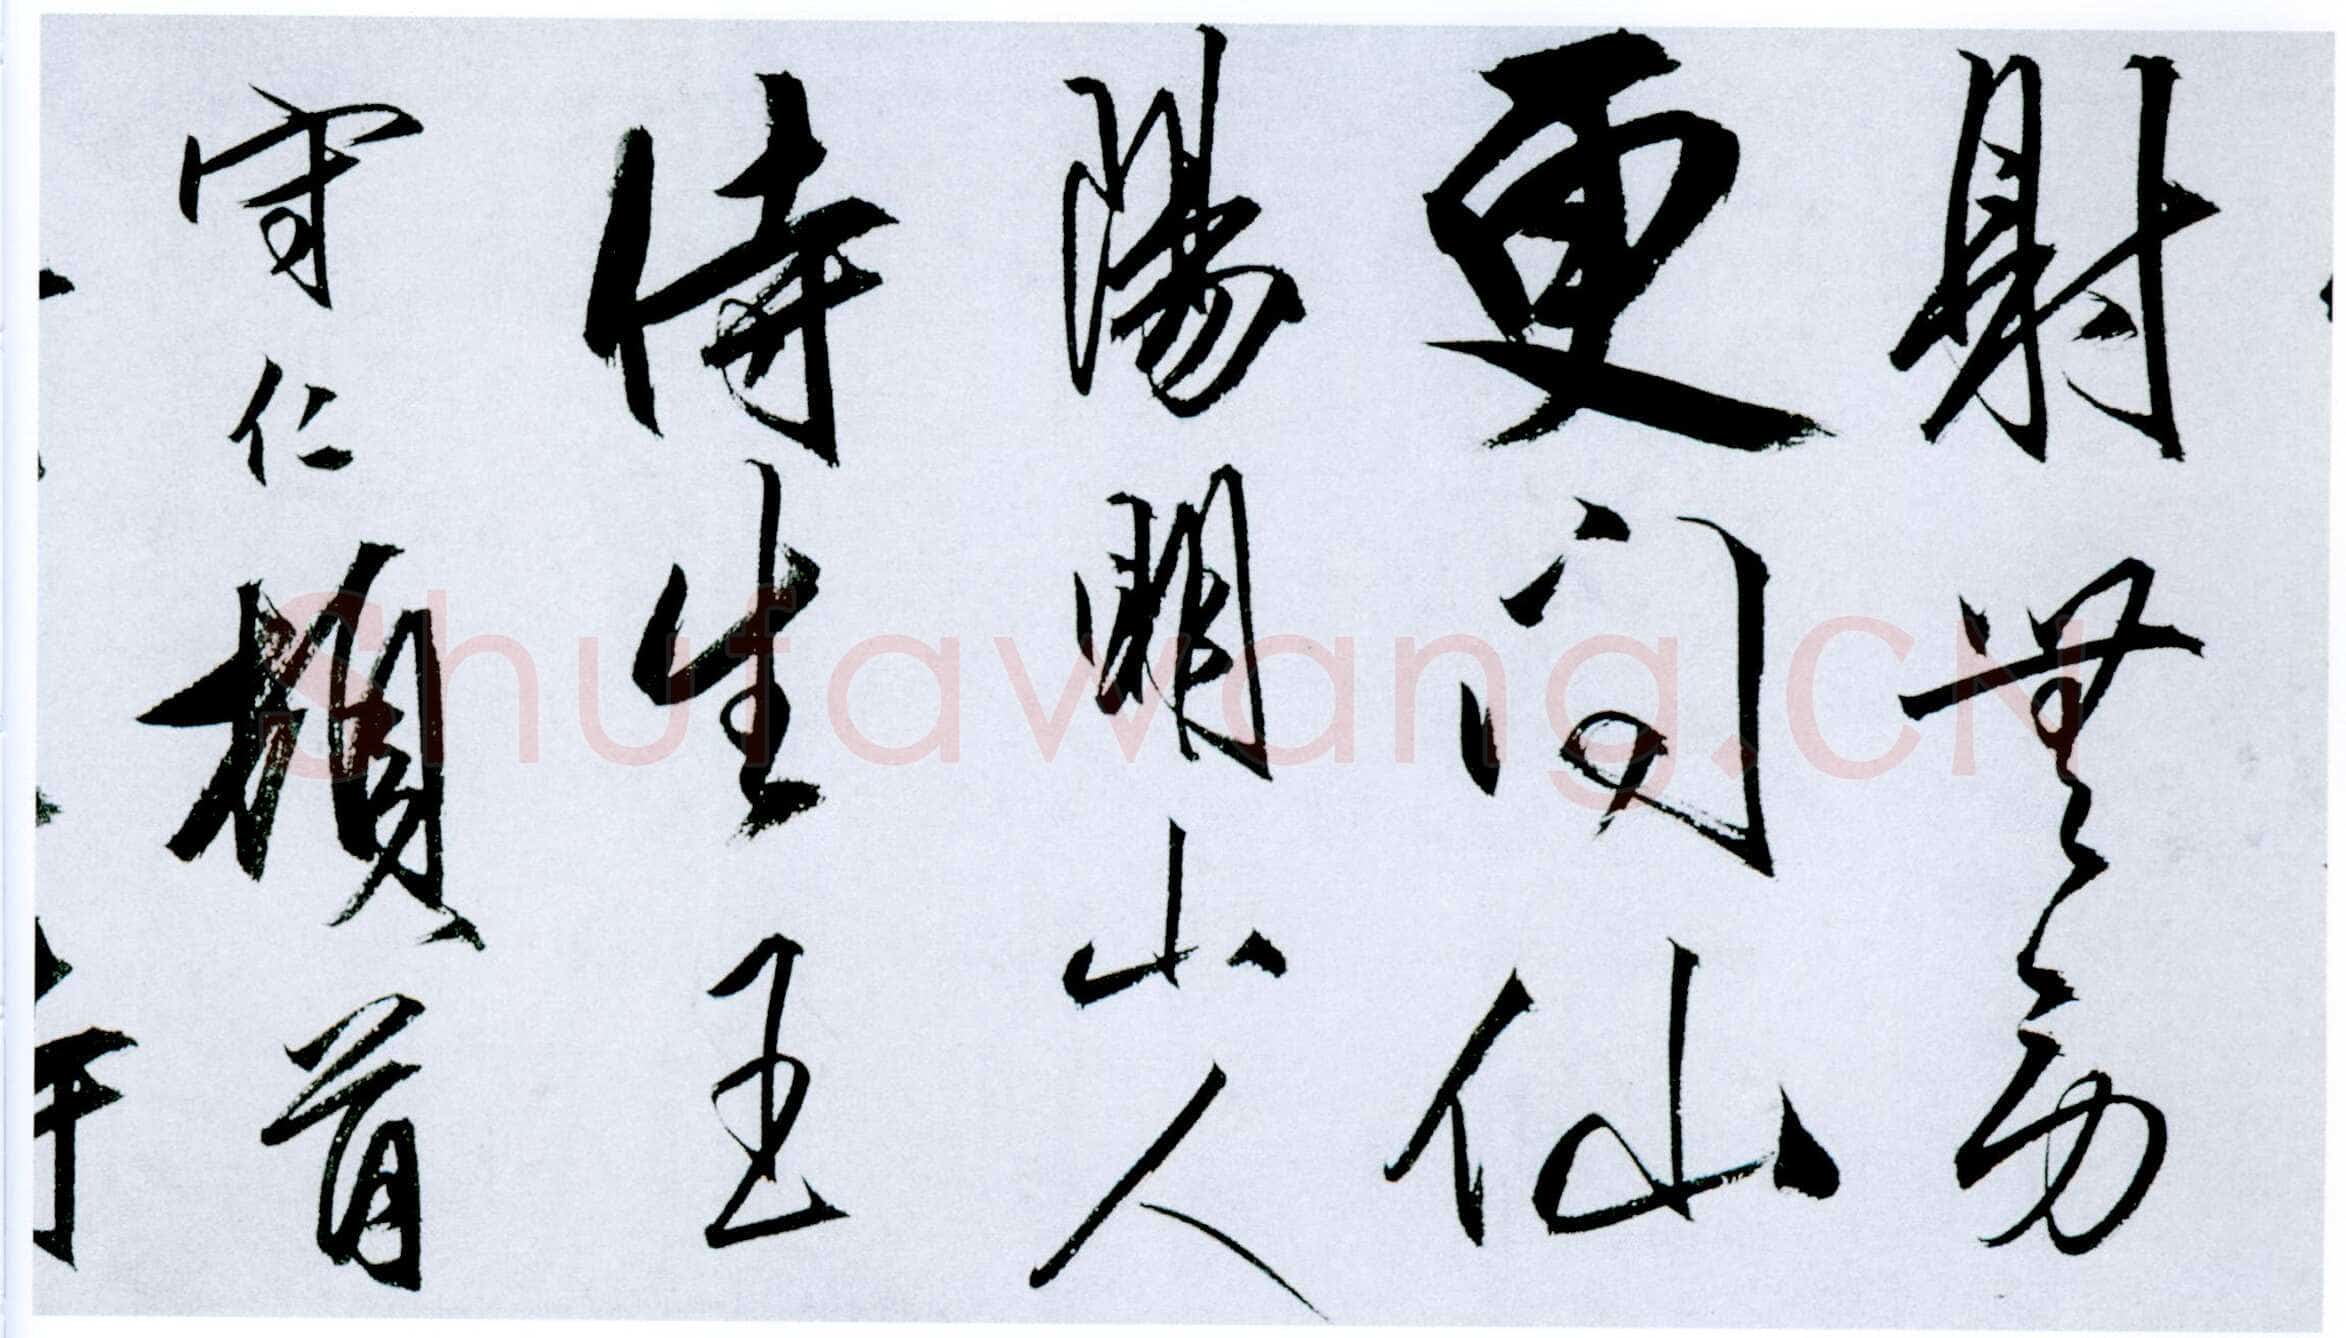 射無勞
更问仙
陽明山人
侍生王
守仁頓首
Shufawang.CN